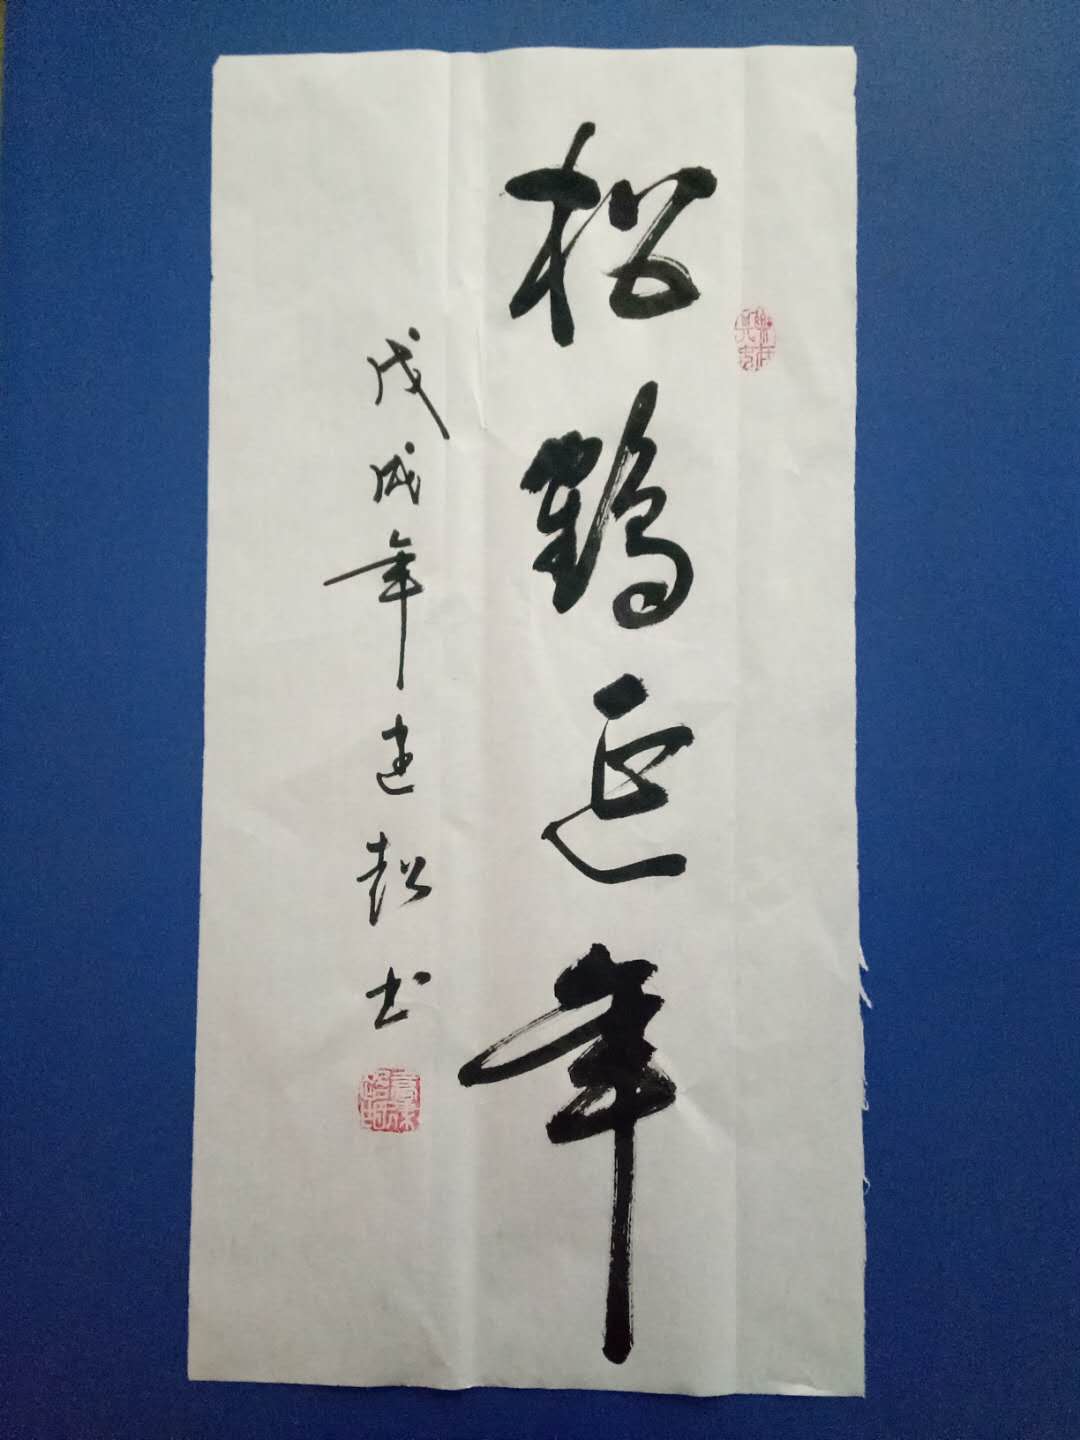 松鹤延年
戊戌年建超书